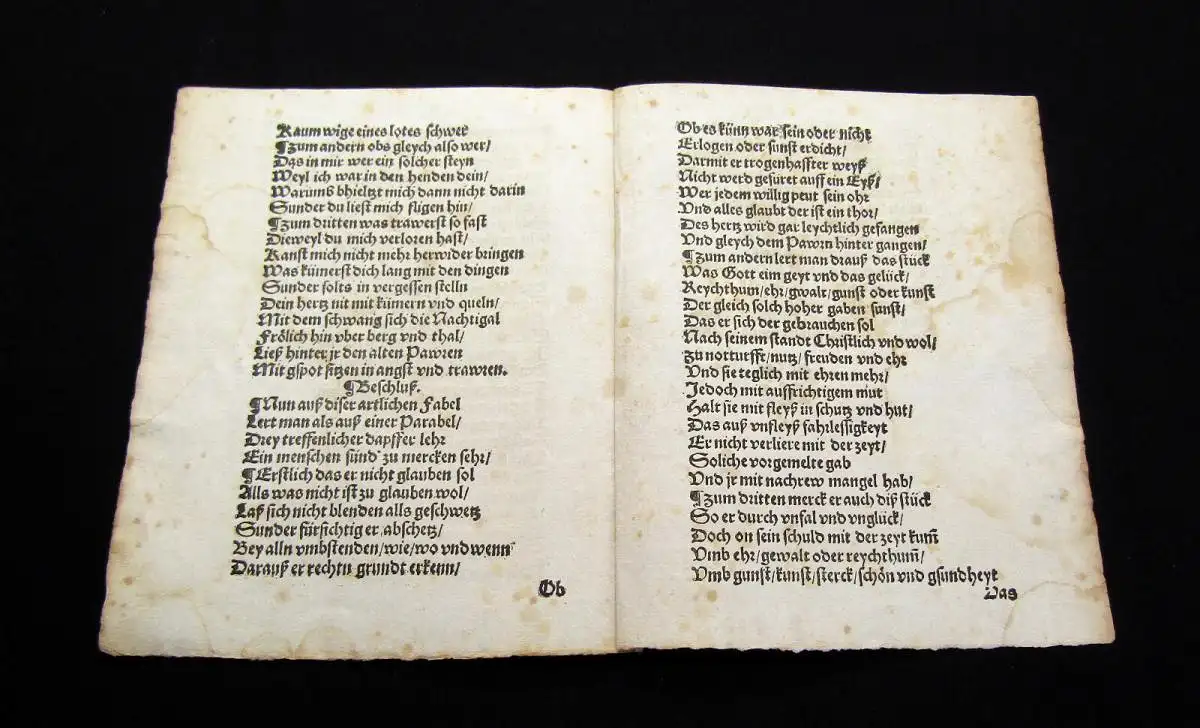 Kaum wige eines lotes schwer
¶Zum andern obs gleych also wer/
Das in mir wer ein solcher steyn
Weyl ich war in den henden dein/
Warumb bhieltzt mich dann nicht darin
Sunder du liest mich fligen hin/
¶Zum dritten was trawerst so fast
Dieweyl du mich verloren hast/
Kanst mich nicht mehr herwider bringen
Was kümerst dich lang mit den dingen
Sunder solts in vergessen stelln
Dein hertz nit mit kümern vnd queln/
Mit dem schwang sich die Nachtigal
Frölich hin vber berg vnd thal/
Ließ hinter jr den alten Pawren
Mit gspot sitzen in angst vnd trawren.
¶Beschluß.
¶Nun auß diser artlichen Fabel
Lert man als auß einer Parabel/
Drey treffenlicher dapffer lehr
Ein menschen sünd zu mercken sehr/
¶Erstlich das er nicht glauben sol
Alls was nicht ist zu glauben wol/
Laß sich nicht blenden alls geschwetz
Sunder fürsichtig er abschetz/
Bey alln vmbstenden/wie/wo vnd wenn
Darauß er rechtn grundt erkenn/
Ob
Ob es künn war sein oder nicht
Erlogen oder sunst erdicht/
Darmit er trogenhaffter weyß
Nicht werd gefüret auff ein Eyß/
Wer jedem willig peut sein ohr
Vnd alles glaubt der ist ein thor/
Des hertz wird gar leychtlich gefangen
Vnd gleych dem Pawrn hinter gangen/
¶Zum andern lert man drauß das stück
Was Gott eim geyt vnd das gelück/
Reychthum/ehr/gwalt/gunst oder kunst
Der gleich solch hoher gaben sunst/
Das er sich der gebrauchen sol
Nach seinem standt Christlich vnd wol/
Zu notturfft/nutz/freuden vnd ehr
Vnd sie teglich mit ehren mehr/
Jedoch mit auffrichtigem mut
Halt sie mit fleyß in schutz vnd hut/
Das auß vnfleyß fahrlessigkeyt
Er nicht verliere mit der zeyt/
Soliche vorgemelte gab
Vnd jr mit nachrew mangel hab/
¶Zum dritten merck er auch diß stück
So er durch vnfal vnd vnglück/
Doch on sein schuld mit der zeyt kum̄
Vmb ehr/gewalt oder reychthum̄/
Vmb gunst/kunst/sterck/schön vnd gsundheyt
Das